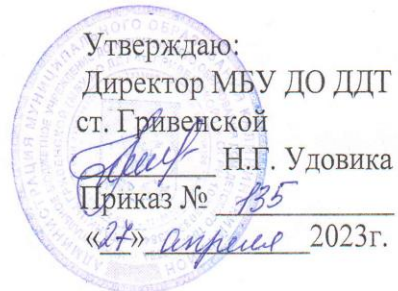 Утверждаю:
Директор МБУ ДО ДДТ
ст. Гривенской
Н.Г. Удовика
Приказ № 135
«27» апреля 2023г.